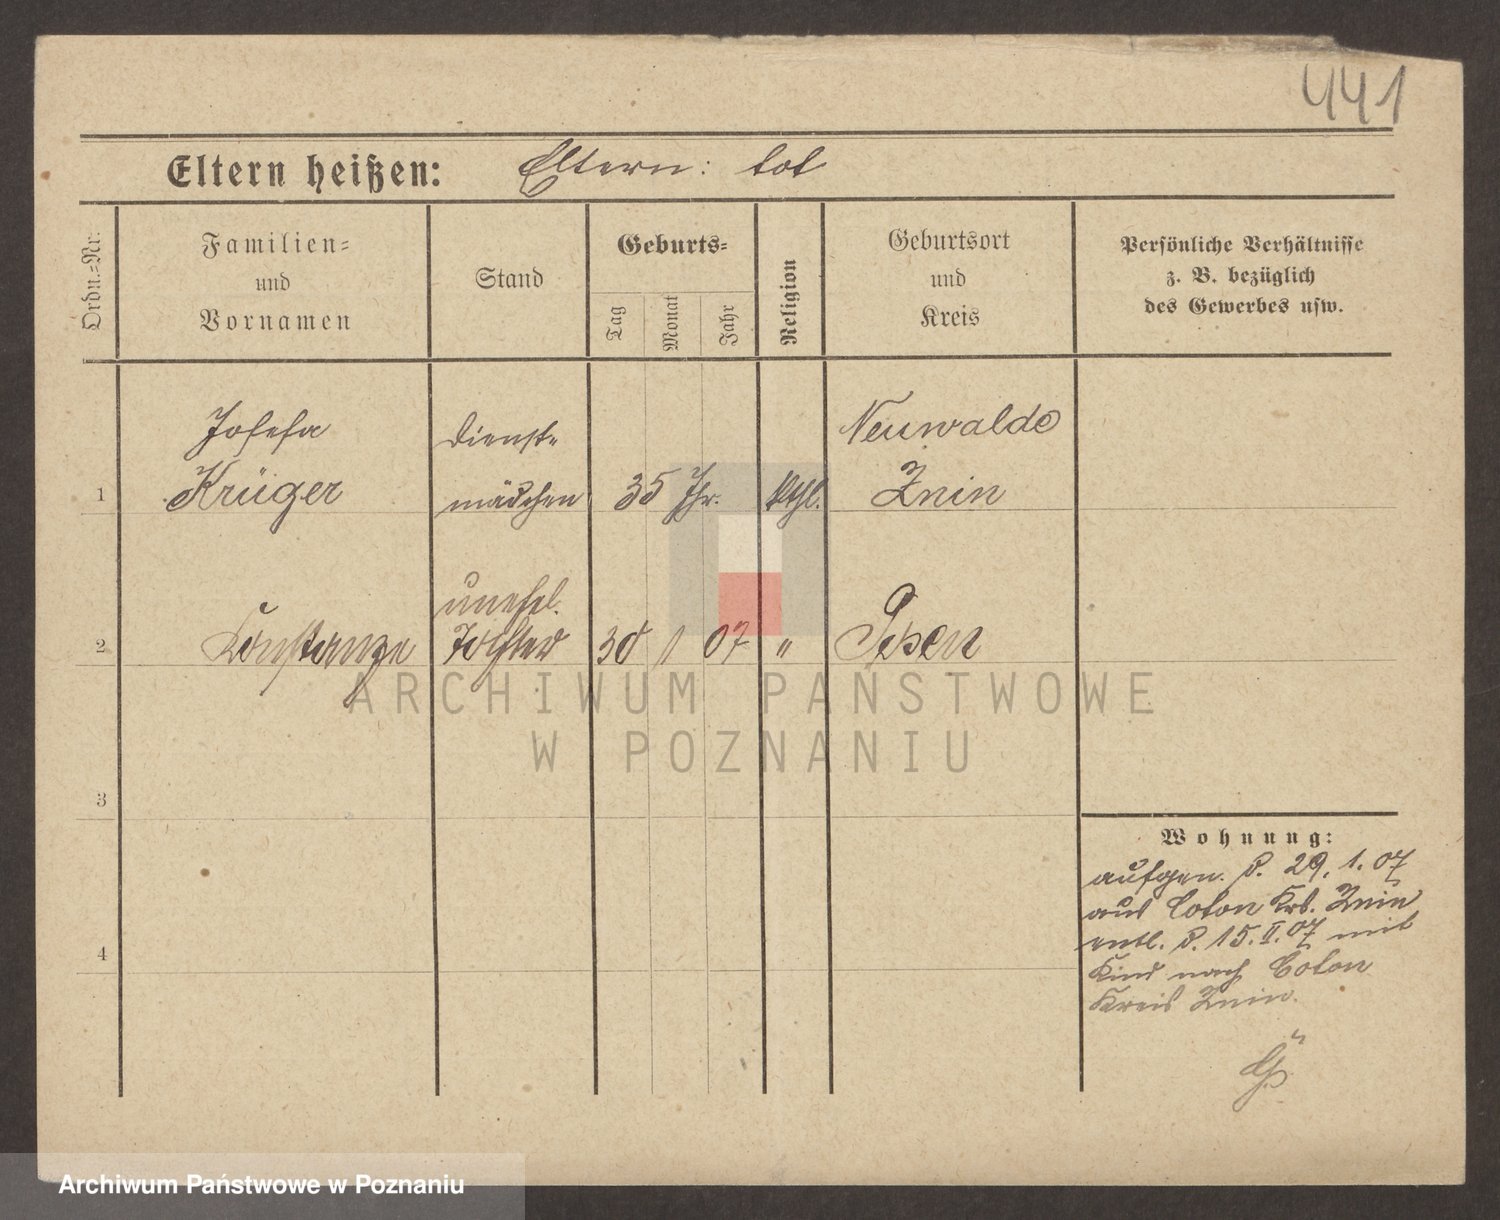 441
Eltern heißen: Eltern: tot
Ordn.-Nr.
Familien-
und
Vornamen
Stand
Geburts-
Tag
Monat
Jahr
Religion
Geburtsort
und
Kreis
Persönliche Verhältnisse
z. B. bezüglich
des Gewerbes usw.
1
Josefa
Krüger
Dienst-
mädchen
35 Jhr.
kthl.
Neuwalde
Znin
2
Konstanze
unehel.
Tochter
30 1 07 "
Posen
3
4
Wohnung:
aufgen. d. 29. 1. 07
aus Coton Krs. Znin
entl. d. 15. II. 07 mit
Kind nach Coton
Kreis Znin.
ARCHIWUM PAŃSTWOWE
W POZNANIU
Archiwum Państwowe w Poznaniu